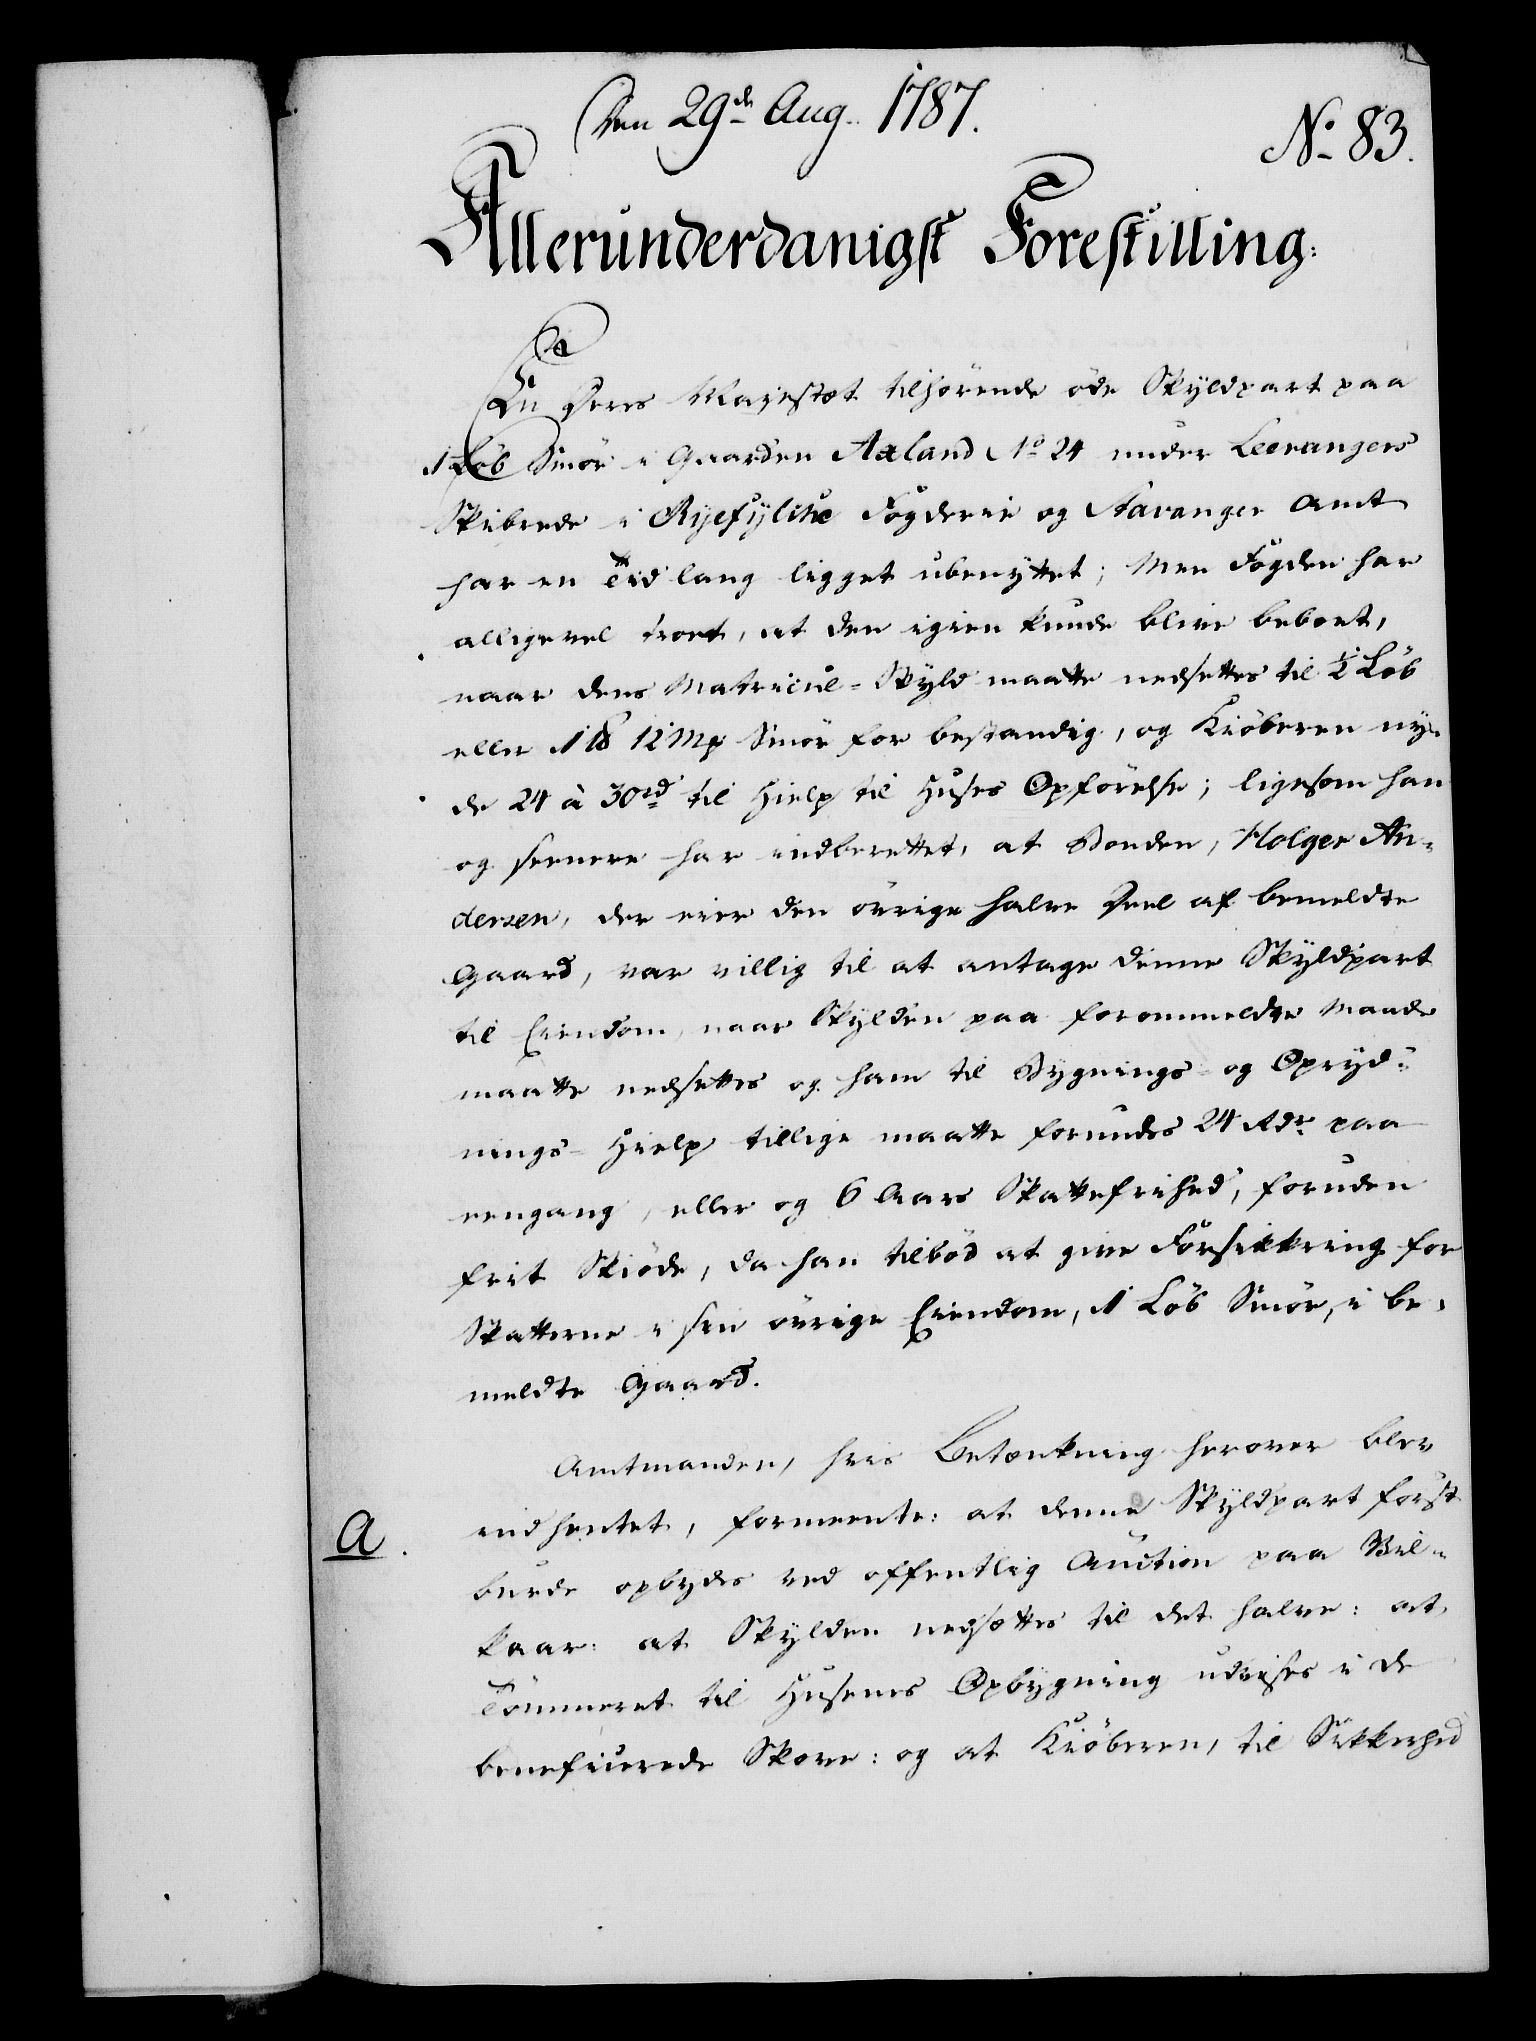 Den 29de Aug. 1787.
No 83.
Allerunderdanigst Forestilling:
En Deres Majestæt tilhörende öde Skyldpart paa
1 Löb Smör i Gaarden Axland No 24 under Leerangers
Skibrede i Ryefylike Fogderie og Stavanger Amt
har en Tid lang ligget ubenyttet; Men Fogden har
alligevel troet, at den igien kunde blive beboet,
naar dens Matricul-Skyld maatte nedsettes til ½ Löb
eller 1 ℔ 12 Mk Smör for bestandig, og Kiöberen ny-
de 24 à 30 rd til Hielp til Huses Opförelse; ligesom han
og seenere har indberettet, at Bonden, Holger An-
dersen, der eier den övrige halve Deel af bemeldte
Gaard, var villig til at antage denne Skyldpart
til Eiendom, naar Skylden paa forommeldte Maade
maatte nedsettes og ham til Bygnings- og Opryd-
nings-Hielp tillige maatte forundes 24 Rdr paa
eengang, eller og 6 Aars Skattefrihed, foruden
frit Skiöde, da han tilböd at give Forsikkring for
Skatterne i sin övrige Eiendom, 1 Löb Smör, i be-
meldte Gaard.
Amtmanden, hvis Betænkning herover blev
A.
indhentet, formeente: at denne Skyldpart först
burde opbydes ved offentlig Auction paa Vil-
kaar: at Skylden nedsættes til det halve: at
Tömmeret til Husenes Opbygning udvises i de
beneficerede Skove: og at Kiöberen, til Sikkerhed